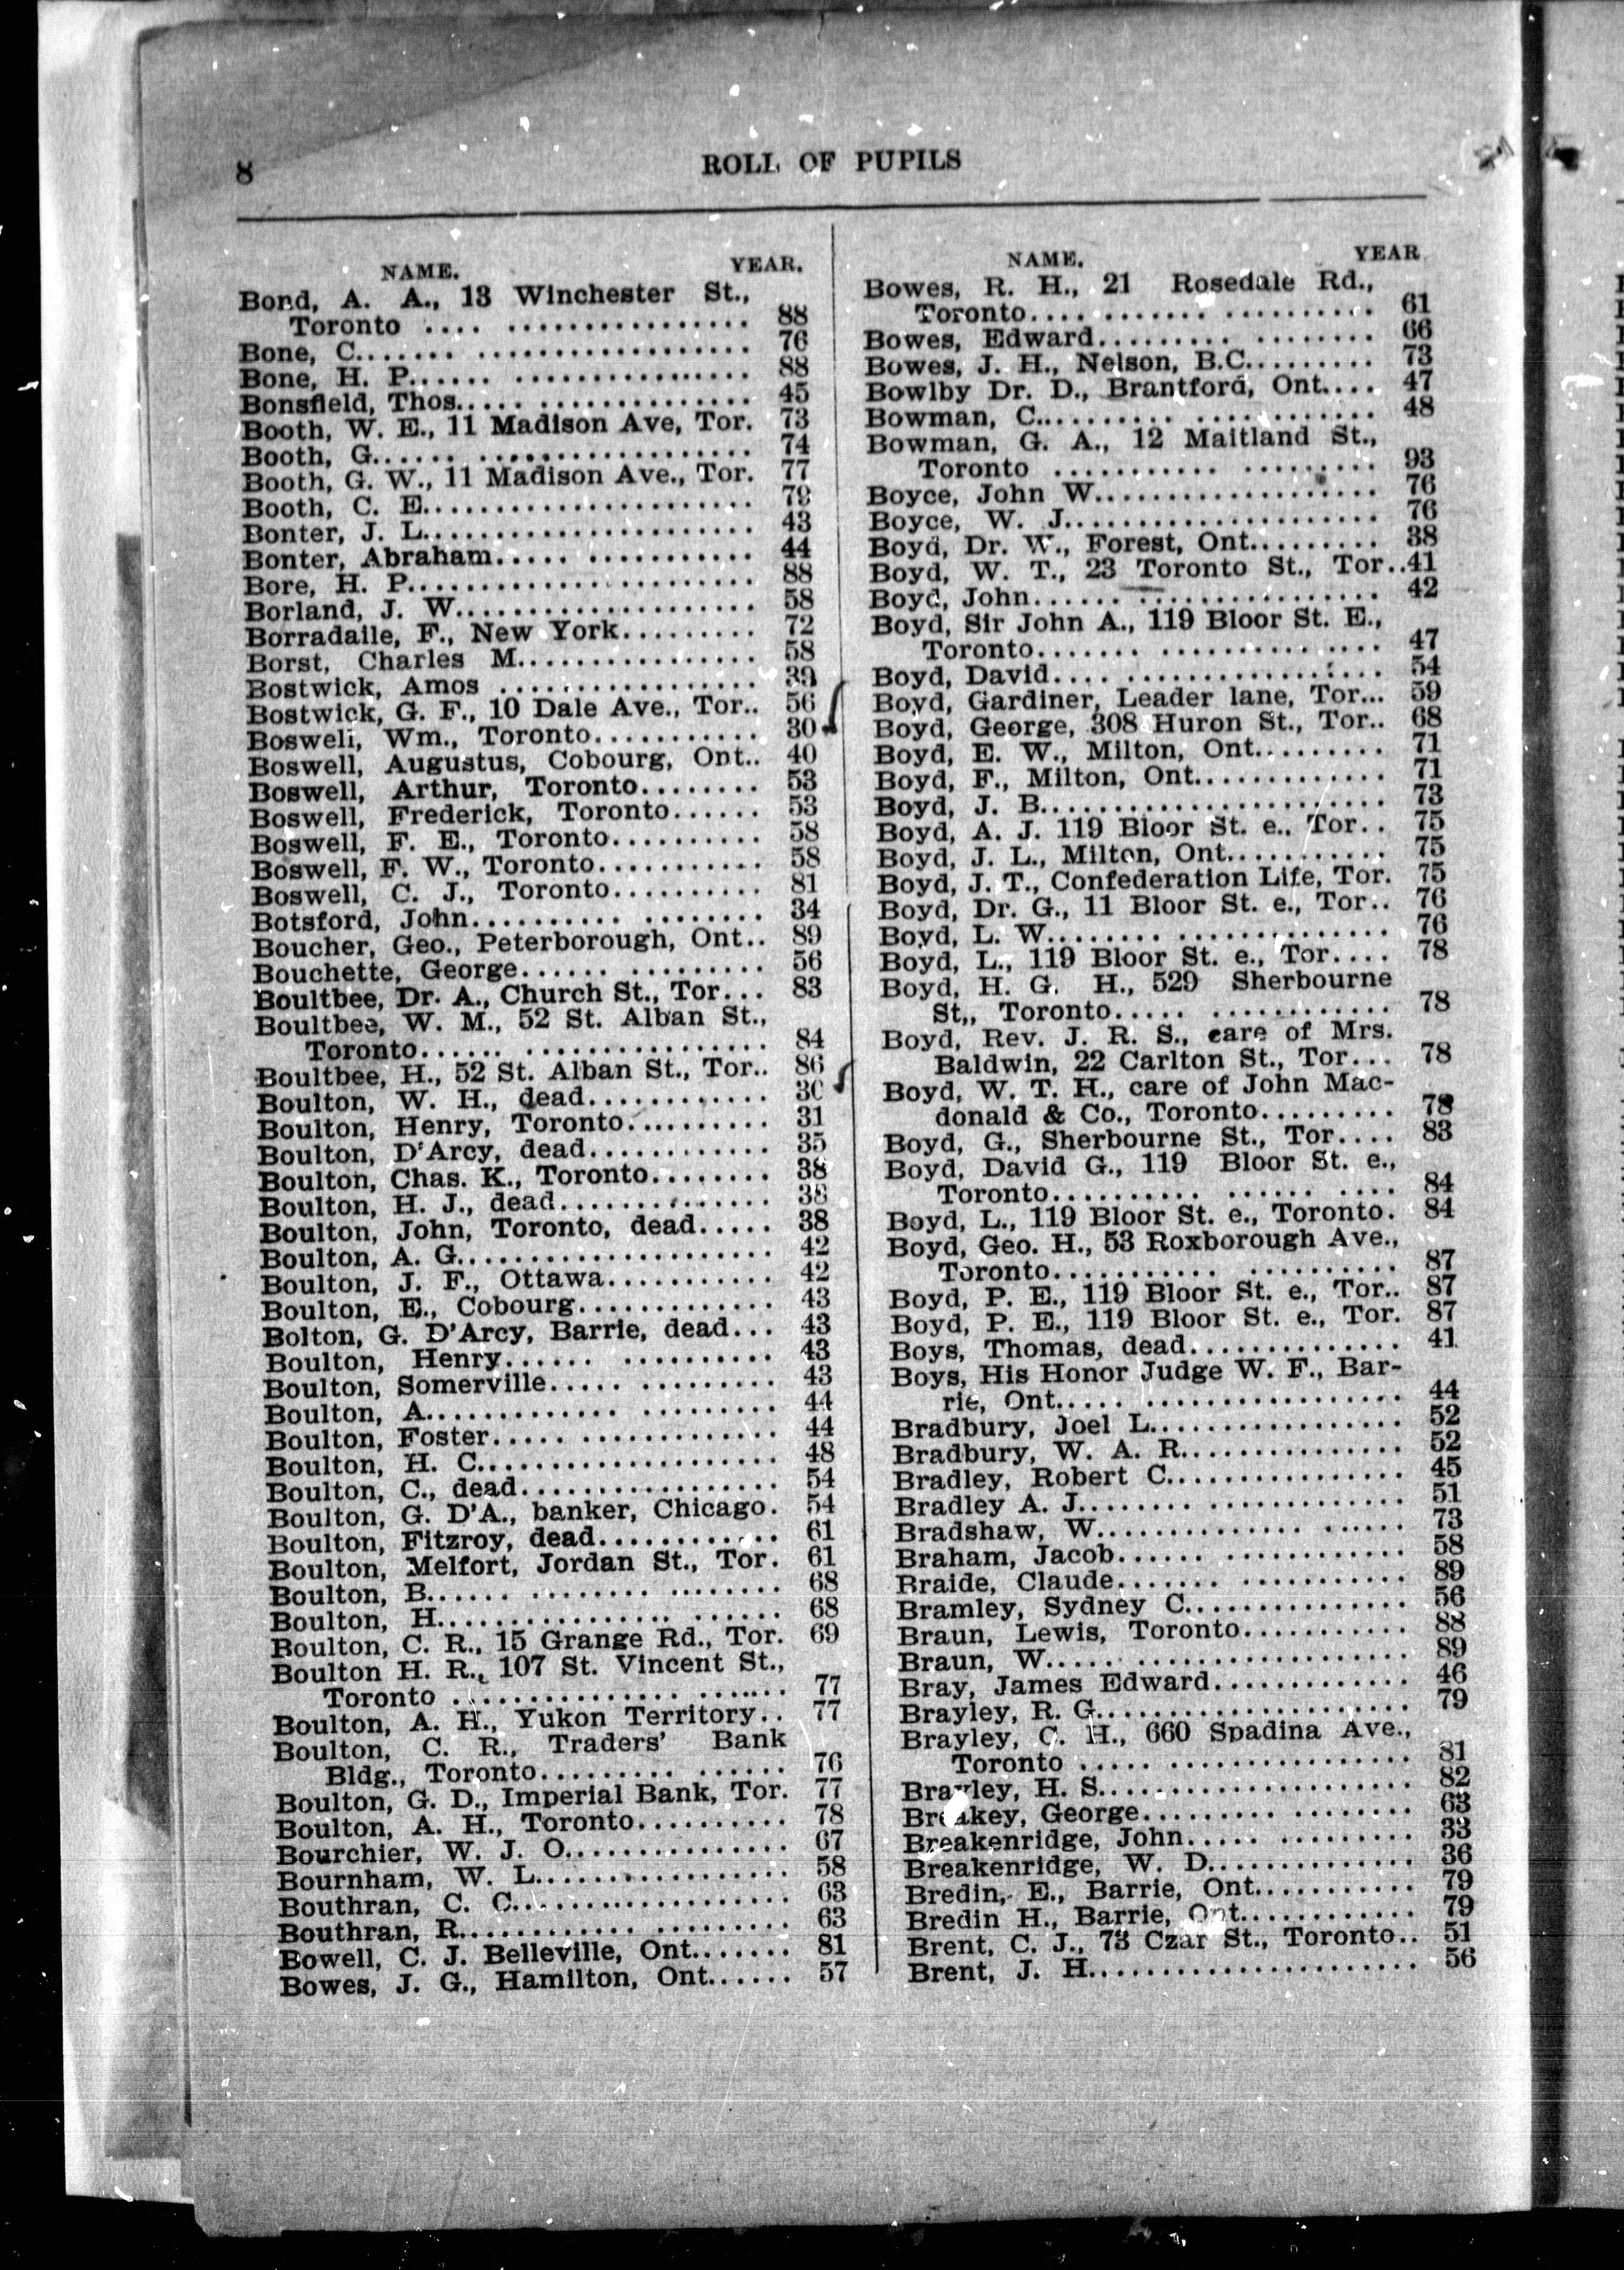 8
ROLL OF PUPILS
NAME. YEAR.
Bond, A. A., 13 Winchester St.,
Toronto .... ................ 88
Bone, C....... .................. 76
Bone, H. P...... ................ 88
Bonsfield, Thos..... .............. 45
Booth, W. E., 11 Madison Ave, Tor. 73
Booth, G...... .................. 74
Booth, G. W., 11 Madison Ave., Tor. 77
Booth, C. E...................... 79
Bonter, J. L...................... 43
Bonter, Abraham..... ........... 44
Bore, H. P....................... 88
Borland, J. W.................... 58
Borradaile, F., New York......... 72
Borst, Charles M................ 58
Bostwick, Amos ................. 39
Bostwick, G. F., 10 Dale Ave., Tor.. 56
Boswell, Wm., Toronto........... 30
Boswell, Augustus, Cobourg, Ont.. 40
Boswell, Arthur, Toronto........ 53
Boswell, Frederick, Toronto...... 53
Boswell, F. E., Toronto.......... 58
Boswell, F. W., Toronto........... 58
Boswell, C. J., Toronto.......... 81
Botsford, John.......... ........ 34
Boucher, Geo., Peterborough, Ont.. 89
Bouchette, George...... ......... 56
Boultbee, Dr. A., Church St., Tor... 83
Boultbee, W. M., 52 St. Alban St.,
Toronto...... ................ 84
Boultbee, H., 52 St. Alban St., Tor.. 86
Boulton, W. H., dead............. 30
Boulton, Henry, Toronto.......... 31
Boulton, D'Arcy, dead............. 35
Boulton, Chas. K., Toronto........ 38
Boulton, H. J., dead............... 38
Boulton, John, Toronto, dead..... 38
Boulton, A. G..................... 42
Boulton, J. F., Ottawa............ 42
Boulton, E., Cobourg.............. 43
Bolton, G. D'Arcy, Barrie, dead... 43
Boulton, Henry...... .......... 43
Boulton, Somerville..... ......... 43
Boulton, A............. ......... 44
Boulton, Foster..... ............. 44
Boulton, H. C.................... 48
Boulton, C., dead................. 54
Boulton, G. D'A., banker, Chicago. 54
Boulton, Fitzroy, dead............ 61
Boulton, Melfort, Jordan St., Tor. 61
Boulton, B...... ........ ........ 68
Boulton, H............... ...... 68
Boulton, C. R., 15 Grange Rd., Tor. 69
Boulton H. R., 107 St. Vincent St.,
Toronto ............... ...... 77
Boulton, A. H., Yukon Territory.. 77
Boulton, C. R., Traders' Bank
Bldg., Toronto......... ...... 76
Boulton, G. D., Imperial Bank, Tor. 77
Boulton, A. H., Toronto.......... 78
Bourchier, W. J. O............... 67
Bournham, W. L.................. 58
Bouthran, C. C................... 63
Bouthran, R............. ......... 63
Bowell, C. J. Belleville, Ont....... 81
Bowes, J. G., Hamilton, Ont...... 57
NAME. YEAR
Bowes, R. H., 21 Rosedale Rd.,
Toronto............ .......... 61
Bowes, Edward......... ........ 66
Bowes, J. H., Nelson, B.C......... 73
Bowlby Dr. D., Brantford, Ont.... 47
Bowman, C.......... ........... 48
Bowman, G. A., 12 Maitland St.,
Toronto ........... ......... 93
Boyce, John W................... 76
Boyce, W. J..................... 76
Boyd, Dr. W., Forest, Ont......... 38
Boyd, W. T., 23 Toronto St., Tor..41
Boyd, John...... ................ 42
Boyd, Sir John A., 119 Bloor St. E.,
Toronto....... ............... 47
Boyd, David.... ................ 54
Boyd, Gardiner, Leader lane, Tor... 59
Boyd, George, 308 Huron St., Tor.. 68
Boyd, E. W., Milton, Ont......... 71
Boyd, F., Milton, Ont............. 71
Boyd, J. B....................... 73
Boyd, A. J. 119 Bloor St. e., Tor.. 75
Boyd, J. L., Milton, Ont........... 75
Boyd, J. T., Confederation Life, Tor. 75
Boyd, Dr. G., 11 Bloor St. e., Tor.. 76
Boyd, L. W........ .............. 76
Boyd, L., 119 Bloor St. e., Tor.... 78
Boyd, H. G. H., 529 Sherbourne
St,, Toronto..... ............ 78
Boyd, Rev. J. R. S., care of Mrs.
Baldwin, 22 Carlton St., Tor... 78
Boyd, W. T. H., care of John Mac-
donald & Co., Toronto......... 78
Boyd, G., Sherbourne St., Tor.... 83
Boyd, David G., 119 Bloor St. e.,
Toronto.......... ...... .... 84
Boyd, L., 119 Bloor St. e., Toronto. 84
Boyd, Geo. H., 53 Roxborough Ave.,
Toronto........... .......... 87
Boyd, P. E., 119 Bloor St. e., Tor.. 87
Boyd, P. E., 119 Bloor St. e., Tor. 87
Boys, Thomas, dead............... 41
Boys, His Honor Judge W. F., Bar-
rie, Ont..... ................. 44
Bradbury, Joel L................. 52
Bradbury, W. A. R............... 52
Bradley, Robert C................ 45
Bradley A. J........ ............. 51
Bradshaw, W.............. ...... 73
Braham, Jacob...... ............ 58
Braide, Claude....... ........... 89
Bramley, Sydney C............... 56
Braun, Lewis, Toronto........... 88
Braun, W..... .................. 89
Bray, James Edward............. 46
Brayley, R. G..................... 79
Brayley, C. H., 660 Spadina Ave.,
Toronto ..... ................ 81
Brayley, H. S..................... 82
Breakey, George......... ........ 63
Breakenridge, John..... ......... 33
Breakenridge, W. D.............. 36
Bredin, E., Barrie, Ont........... 79
Bredin H., Barrie, Ont............ 79
Brent, C. J., 73 Czar St., Toronto.. 51
Brent, J. H...................... 56